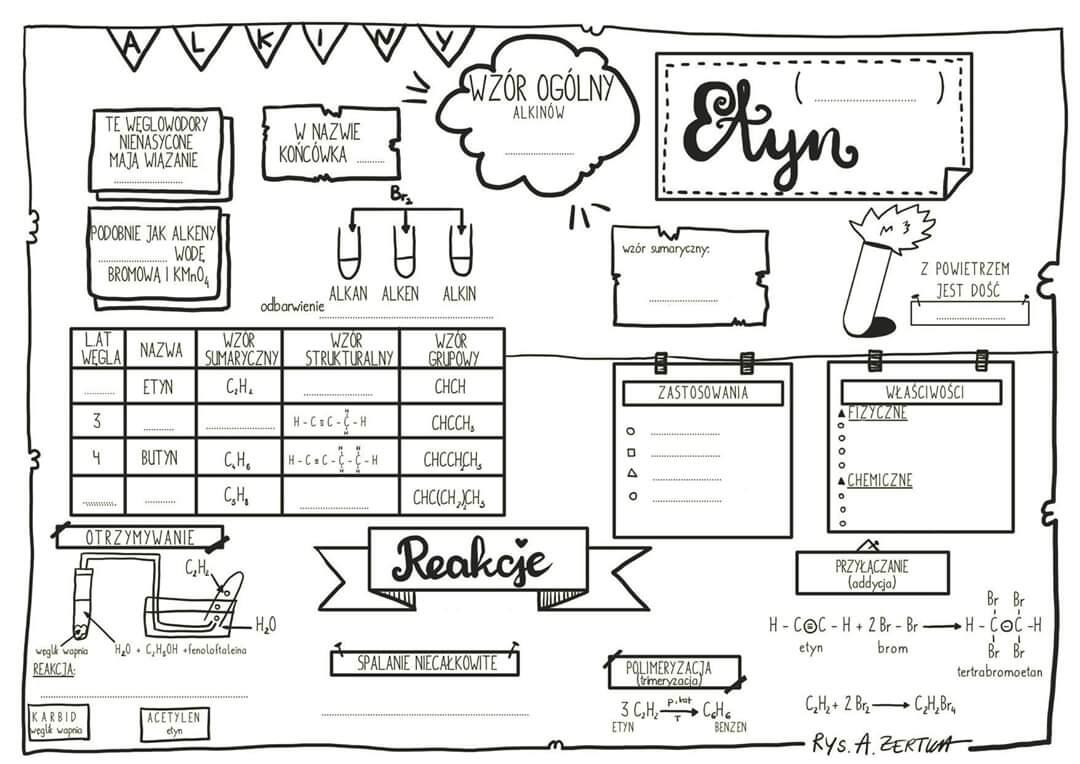 ALKINY
TE WĘGLOWODORY
NIENASYCONE
MAJĄ WIĄZANIE
....................
W NAZWIE
KOŃCÓWKA ........
WZÓR OGÓLNY
ALKINÓW
....................
Etyn
(....................)
PODOBNIE JAK ALKENY
.................... WODĘ
BROMOWĄ I KMnO₄
Br₂
ALKAN ALKEN ALKIN
odbarwienie ....................
wzór sumaryczny:
....................
Z POWIETRZEM
JEST DOŚĆ
....................
LAT WĘGLA
NAZWA
WZÓR SUMARYCZNY
WZÓR STRUKTURALNY
WZÓR GRUPOWY
........ ETYN C₂H₂ .................... CHCH
3 ........ .................... H-C≡C-C-H CHCCH₃
H
H
4 BUTYN C₄H₆ H-C≡C-C-C-H CHCCH₂CH₃
H H
H H
........ ........ C₅H₈ .................... CHC(CH₂)₂CH₃
ZASTOSOWANIA
....................
....................
....................
....................
WŁAŚCIWOŚCI
FIZYCZNE
CHEMICZNE
OTRZYMYWANIE
C₂H₂
H₂O
węglik wapnia
H₂O + C₂H₅OH + fenoloftaleina
REAKCJA:
....................
KARBID
węglik wapnia
ACETYLEN
etyn
Reakcje
SPALANIE NIECAŁKOWITE
....................
POLIMERYZACJA
(trimeryzacja)
3 C₂H₂ → C₆H₆
p, kat
T
ETYN BENZEN
PRZYŁĄCZANIE
(addycja)
Br Br
H - C≡C - H + 2 Br - Br → H - C-C - H
Br Br
etyn brom
tertrabromoetan
C₂H₂ + 2 Br₂ → C₂H₂Br₄
RYS. A. ZERTKA